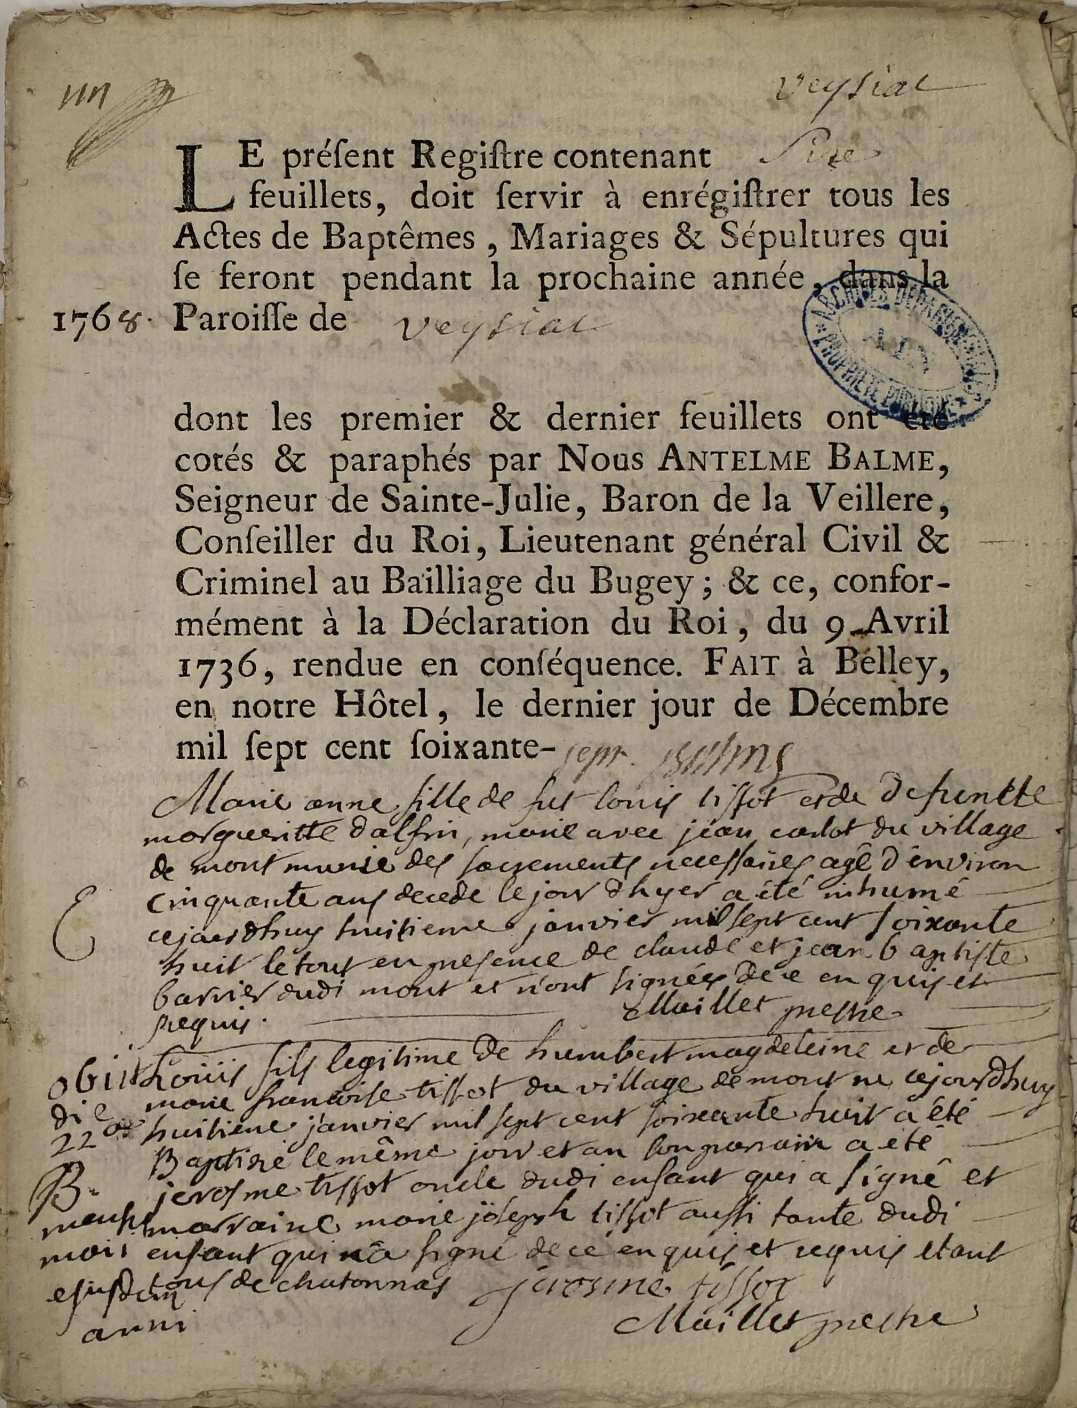 Veysiat
LE préſent Regiſtre contenant Sixe
feuillets, doit ſervir à enrégiſtrer tous les
Actes de Baptêmes, Mariages & Sépultures qui
ſe feront pendant la prochaine année, dans la
1768. Paroiſſe de Veysiat
ARCHIVES DEPARTEMENTALES
PROPRIETE PUBLIQUE
dont les premier & dernier feuillets ont été
cotés & paraphés par Nous ANTELME BALME,
Seigneur de Sainte-Julie, Baron de la Veillere,
Conſeiller du Roi, Lieutenant général Civil &
Criminel au Bailliage du Bugey; & ce, confor-
mément à la Déclaration du Roi, du 9 Avril
1736, rendue en conſéquence. FAIT à Belley,
en notre Hôtel, le dernier jour de Décembre
mil ſept cent ſoixante-sept. Balme
Marie anne fille de fut louis tissot et de defuncte
margueritte dalfin, marie avec jean carlot du village
de mont munie des sacrements necessaires agê d'environ
cinquante ans decede le jour d'hyer a été inhumé
cejourdhuy huitieme janvier mil sept cent soixante
huit le tout en presence de claude et jean baptiste
barrier dudi mont et n'ont signés de ce enquis et
requis. Maillet prestre
Louis fils legitime de humbert magdeleine et de
marie francoise tissot du village de mont ne cejourdhuy
huitieme janvier mil sept cent soixante huit a été
Baptisé le même jour et an son parrain a eté
jerosme tissot oncle dudi enfant qui a signé et
marraine marie joseph tissot aussi tante dudi
enfant qui n'a signé de ce enquis et requis etant
tous de chatonnas jerosme tissot
Maillet prestre
obiit
die
22a
B.
mensis
maii
ejusdem
anni